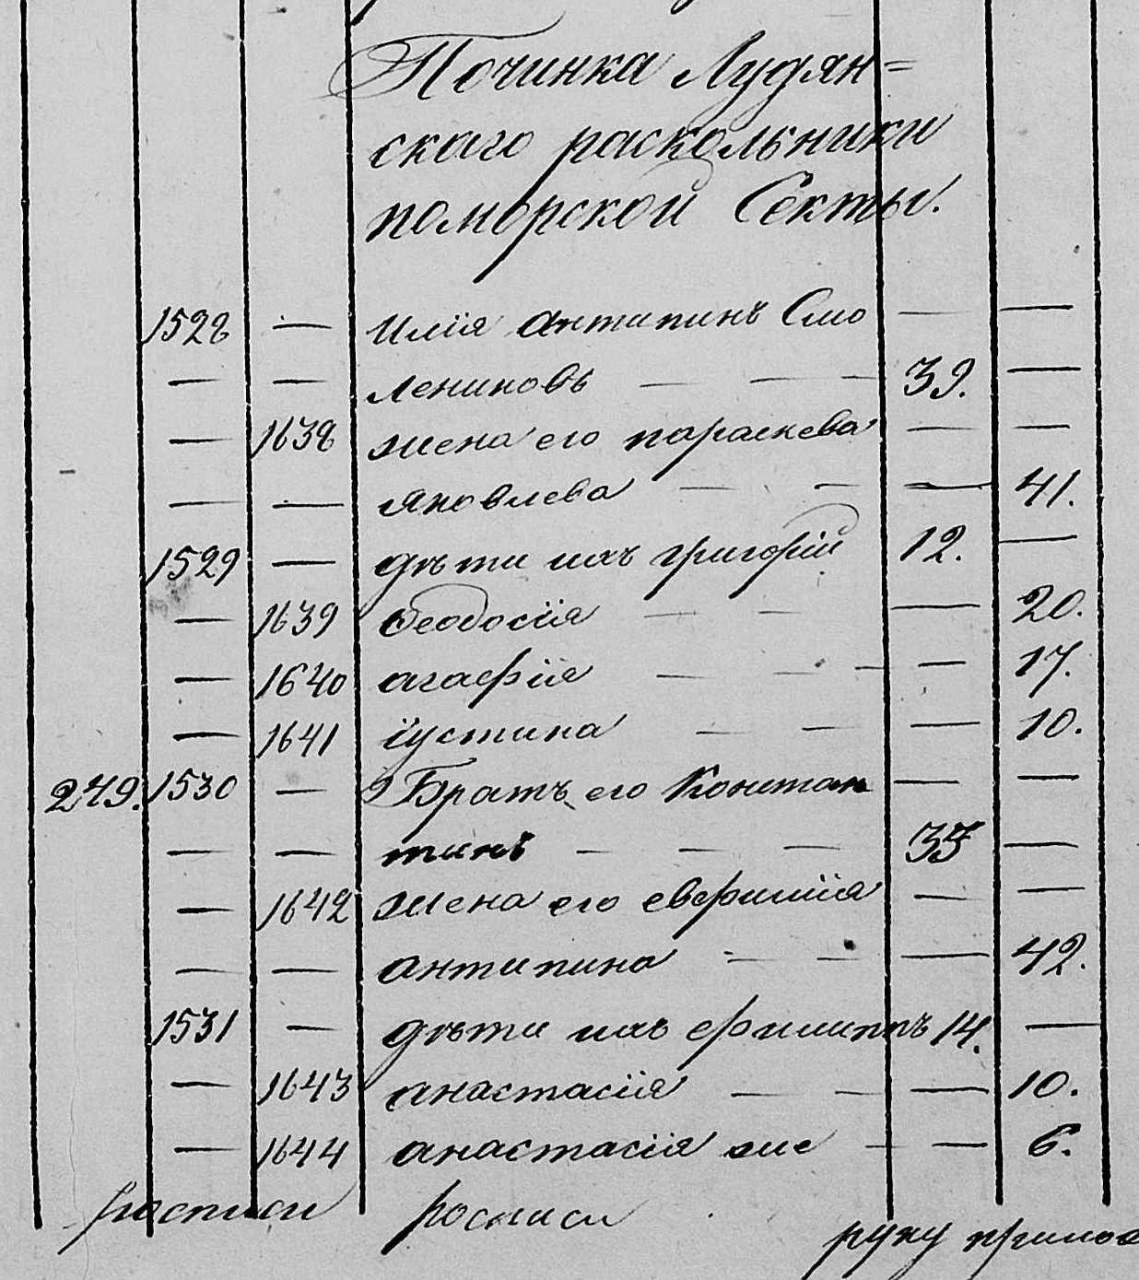 Починка Лудян=
скаго раскольники
поморской Секты.
1528 — Илія Антипинъ Смо — —
— — лениковъ — — — 39. —
— 1638 жена его параскева — —
— — яковлева — — — 41.
1529 — дѣти ихъ григорій 12. —
— 1639 Феодосія — — — 20.
— 1640 агафія — — — — 17.
— 1641 іустина — — — 10.
249. 1530 — 2 Братъ его Констан — —
— — тинъ — — — 35 —
— 1642 жена его евфимія — —
— — антипина — — — 42.
1531 — дѣти ихъ филиппъ 14. —
— 1643 анастасія — — — 10.
— 1644 анастасія же — — 6.
росписи росписи руку прило